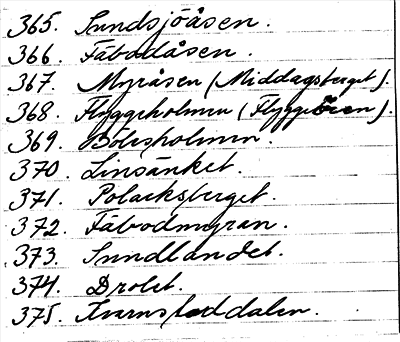 365. Sundsjöåsen.
366. Fäbodåsen.
367. Myråsen (Middagsberget).
368. Flyggeholmen (Flyggeören).
369. Bölesholmen.
370. Linsänket.
371. Polacksberget.
372. Fäbodmyran.
373. Sundlandet.
374. Drolet.
375. daln.